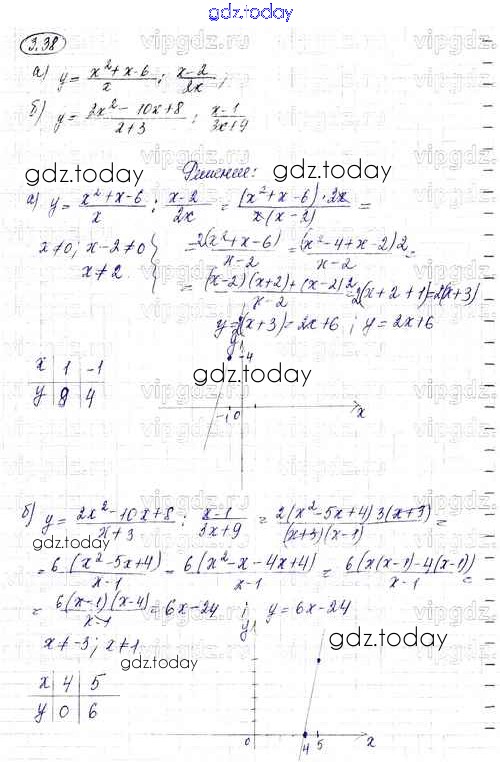 gdz.today
3.38
а) y = (x²+x-6)/x : (x-2)/2x ;
б) y = (2x²-10x+8)/(x+3) : (x-1)/(3x+9)
Решение:
gdz.today gdz.today
а) y = (x²+x-6)/x : (x-2)/2x = ((x²+x-6)·2x)/(x(x-2)) =
x≠0; x-2≠0 = 2(x²+x-6)/(x-2) = (x²-4+x-2)2/(x-2) =
x≠2 } = ((x-2)(x+2)+(x-2)2)/(x-2) = 2(x+2+1)=2(x+3)
y=2(x+3)=2x+6 ; y=2x+6
y
x 1 -1 -4
gdz.today
y 8 4
-1 0 x
б) y = (2x²-10x+8)/(x+3) : (x-1)/(3x+9) = 2(x²-5x+4)3(x+3)/((x+3)(x-1)) =
gdz.today
= 6(x²-5x+4)/(x-1) = 6(x²-x-4x+4)/(x-1) = 6(x(x-1)-4(x-1))/(x-1) =
= 6(x-1)(x-4)/(x-1) = 6x-24 ; y=6x-24
x≠-3; x≠1 y
gdz.today gdz.today
x 4 5
y 0 6
0 4 5 x